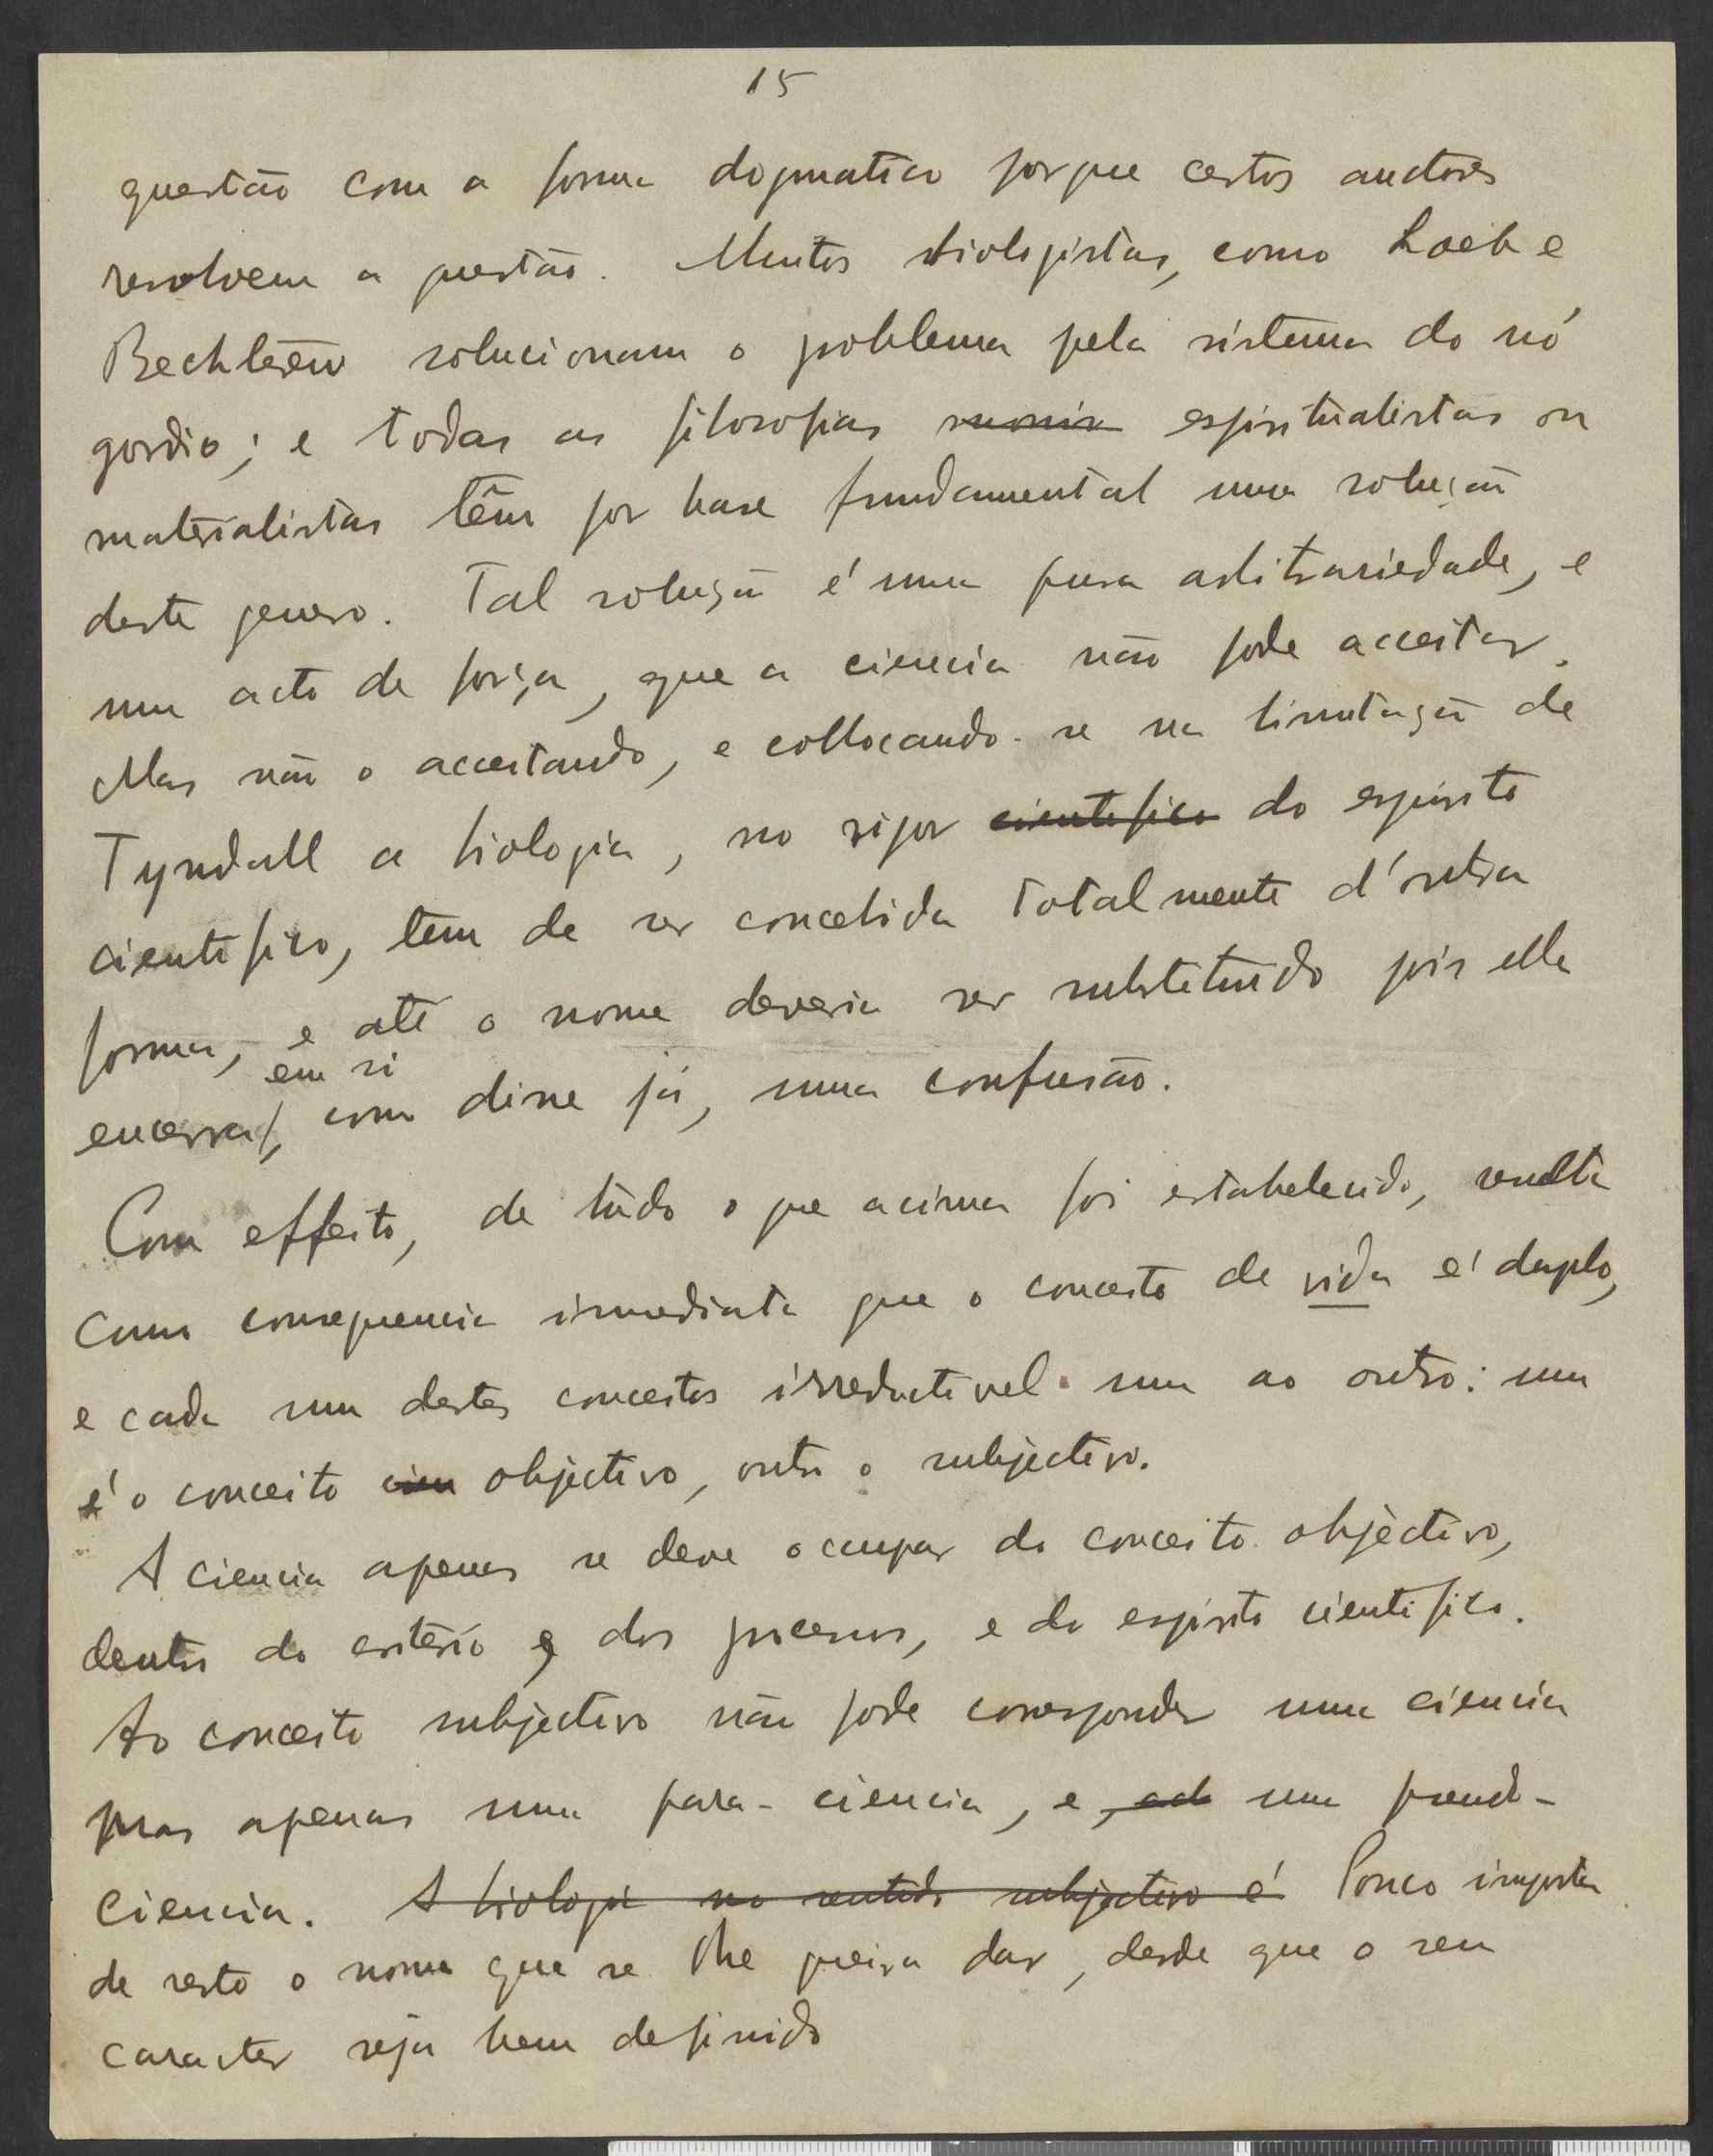 15
questão com a forma dogmatica porque certos auctores
resolvem a questão. Muitos biologistas, como Loeb e
Bechterew solucionam o problema pela sistema do nó
gordio; e todas as filosofias espiritualistas ou
materialistas têm por base fundamental uma solução
deste genero. Tal solução é uma pura arbitrariedade, e
um acto de força, que a ciencia não pode acceitar.
Mas não o acceitando, e collocando-se na limitação de
Tyndall a biologia, no rigor cientifico do espirito
cientifico, tem de ser concebida totalmente d'outra
forma, e até o nome deveria ser substituido pois ella
em si
encerra, como disse já, uma confusão.
Com effeito, de tudo o que acima foi estabelecido, resulta
como consequencia immediata que o conceito de vida é duplo,
e cada um destes conceitos irreductivel um ao outro: um
é o conceito cien objectivo, outro o subjectivo.
A ciencia apenas se deve occupar do conceito objectivo,
dentro do criterio e dos processos, e do espirito cientifico.
Ao conceito subjectivo não pode corresponder uma ciencia
mas apenas uma para-ciencia, e uma pseudo-
ciencia. A biologia no sentido subjectivo é Pouco importa
de resto o nome que se lhe queira dar, desde que o seu
caracter seja bem definido